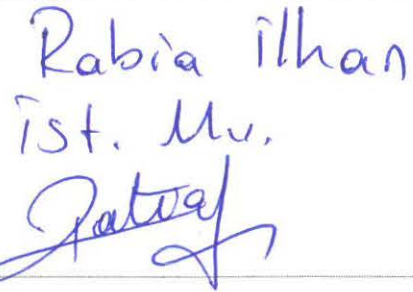 Rabia İlhan
İst. Mv.